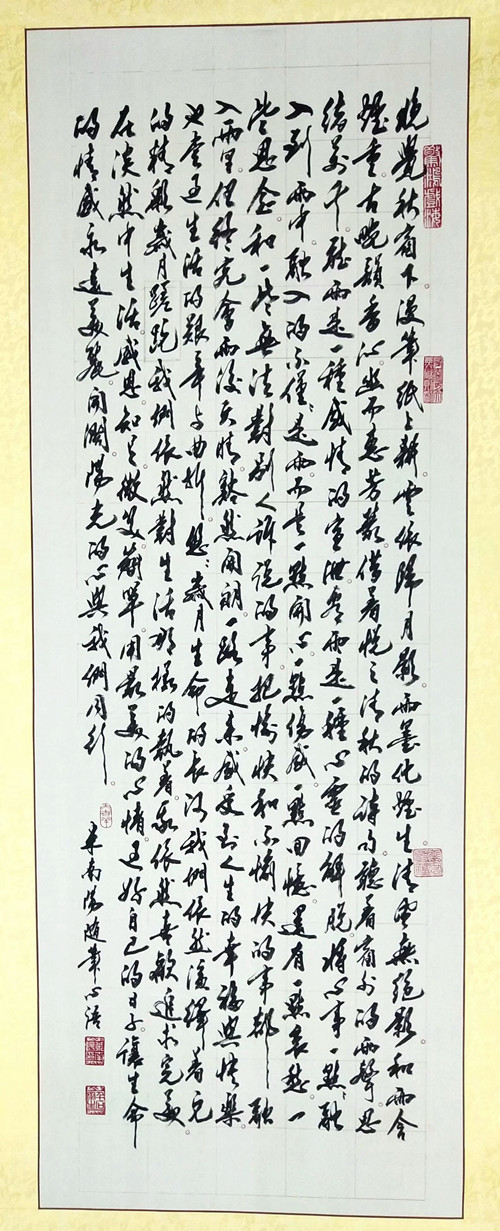 晚覺秋窗下。漫筆紙上耕。雲依歸月影。雨墨化烟生。清風無絕影。和雨含
烟重。古晚韻香心幽不惹芳叢。伴着悅之清秋的詩句聽着窗外的雨聲思
緒万千。聽雨是一種感情的宣洩。看雨是一種心靈的解脫。將心事一點點融
入到雨中。融入的不僅僅是雨。而是一點開心。一點傷感。一點回憶。還有一點哀愁。一
些思念。和一些無法對別人訴說的事。把愉快和不愉快的事都一一融
入雨里。但終究會雨後天晴。豁然開朗。一路走來。感受到人生的幸福與快樂
也走過生活的艱辛与曲折。悠悠歲月。生命的長河。我們依然演繹着它
的精彩。歲月蹉跎。我們依然對生活那樣的執着。我依然喜歡追求完美。
在淡然中生活。感恩。知足。微笑。簡單。用最美的心情。過好自己的日子。讓生命
的情感永遠美麗。開闊陽光的心與我們同行
南陽隨筆心語